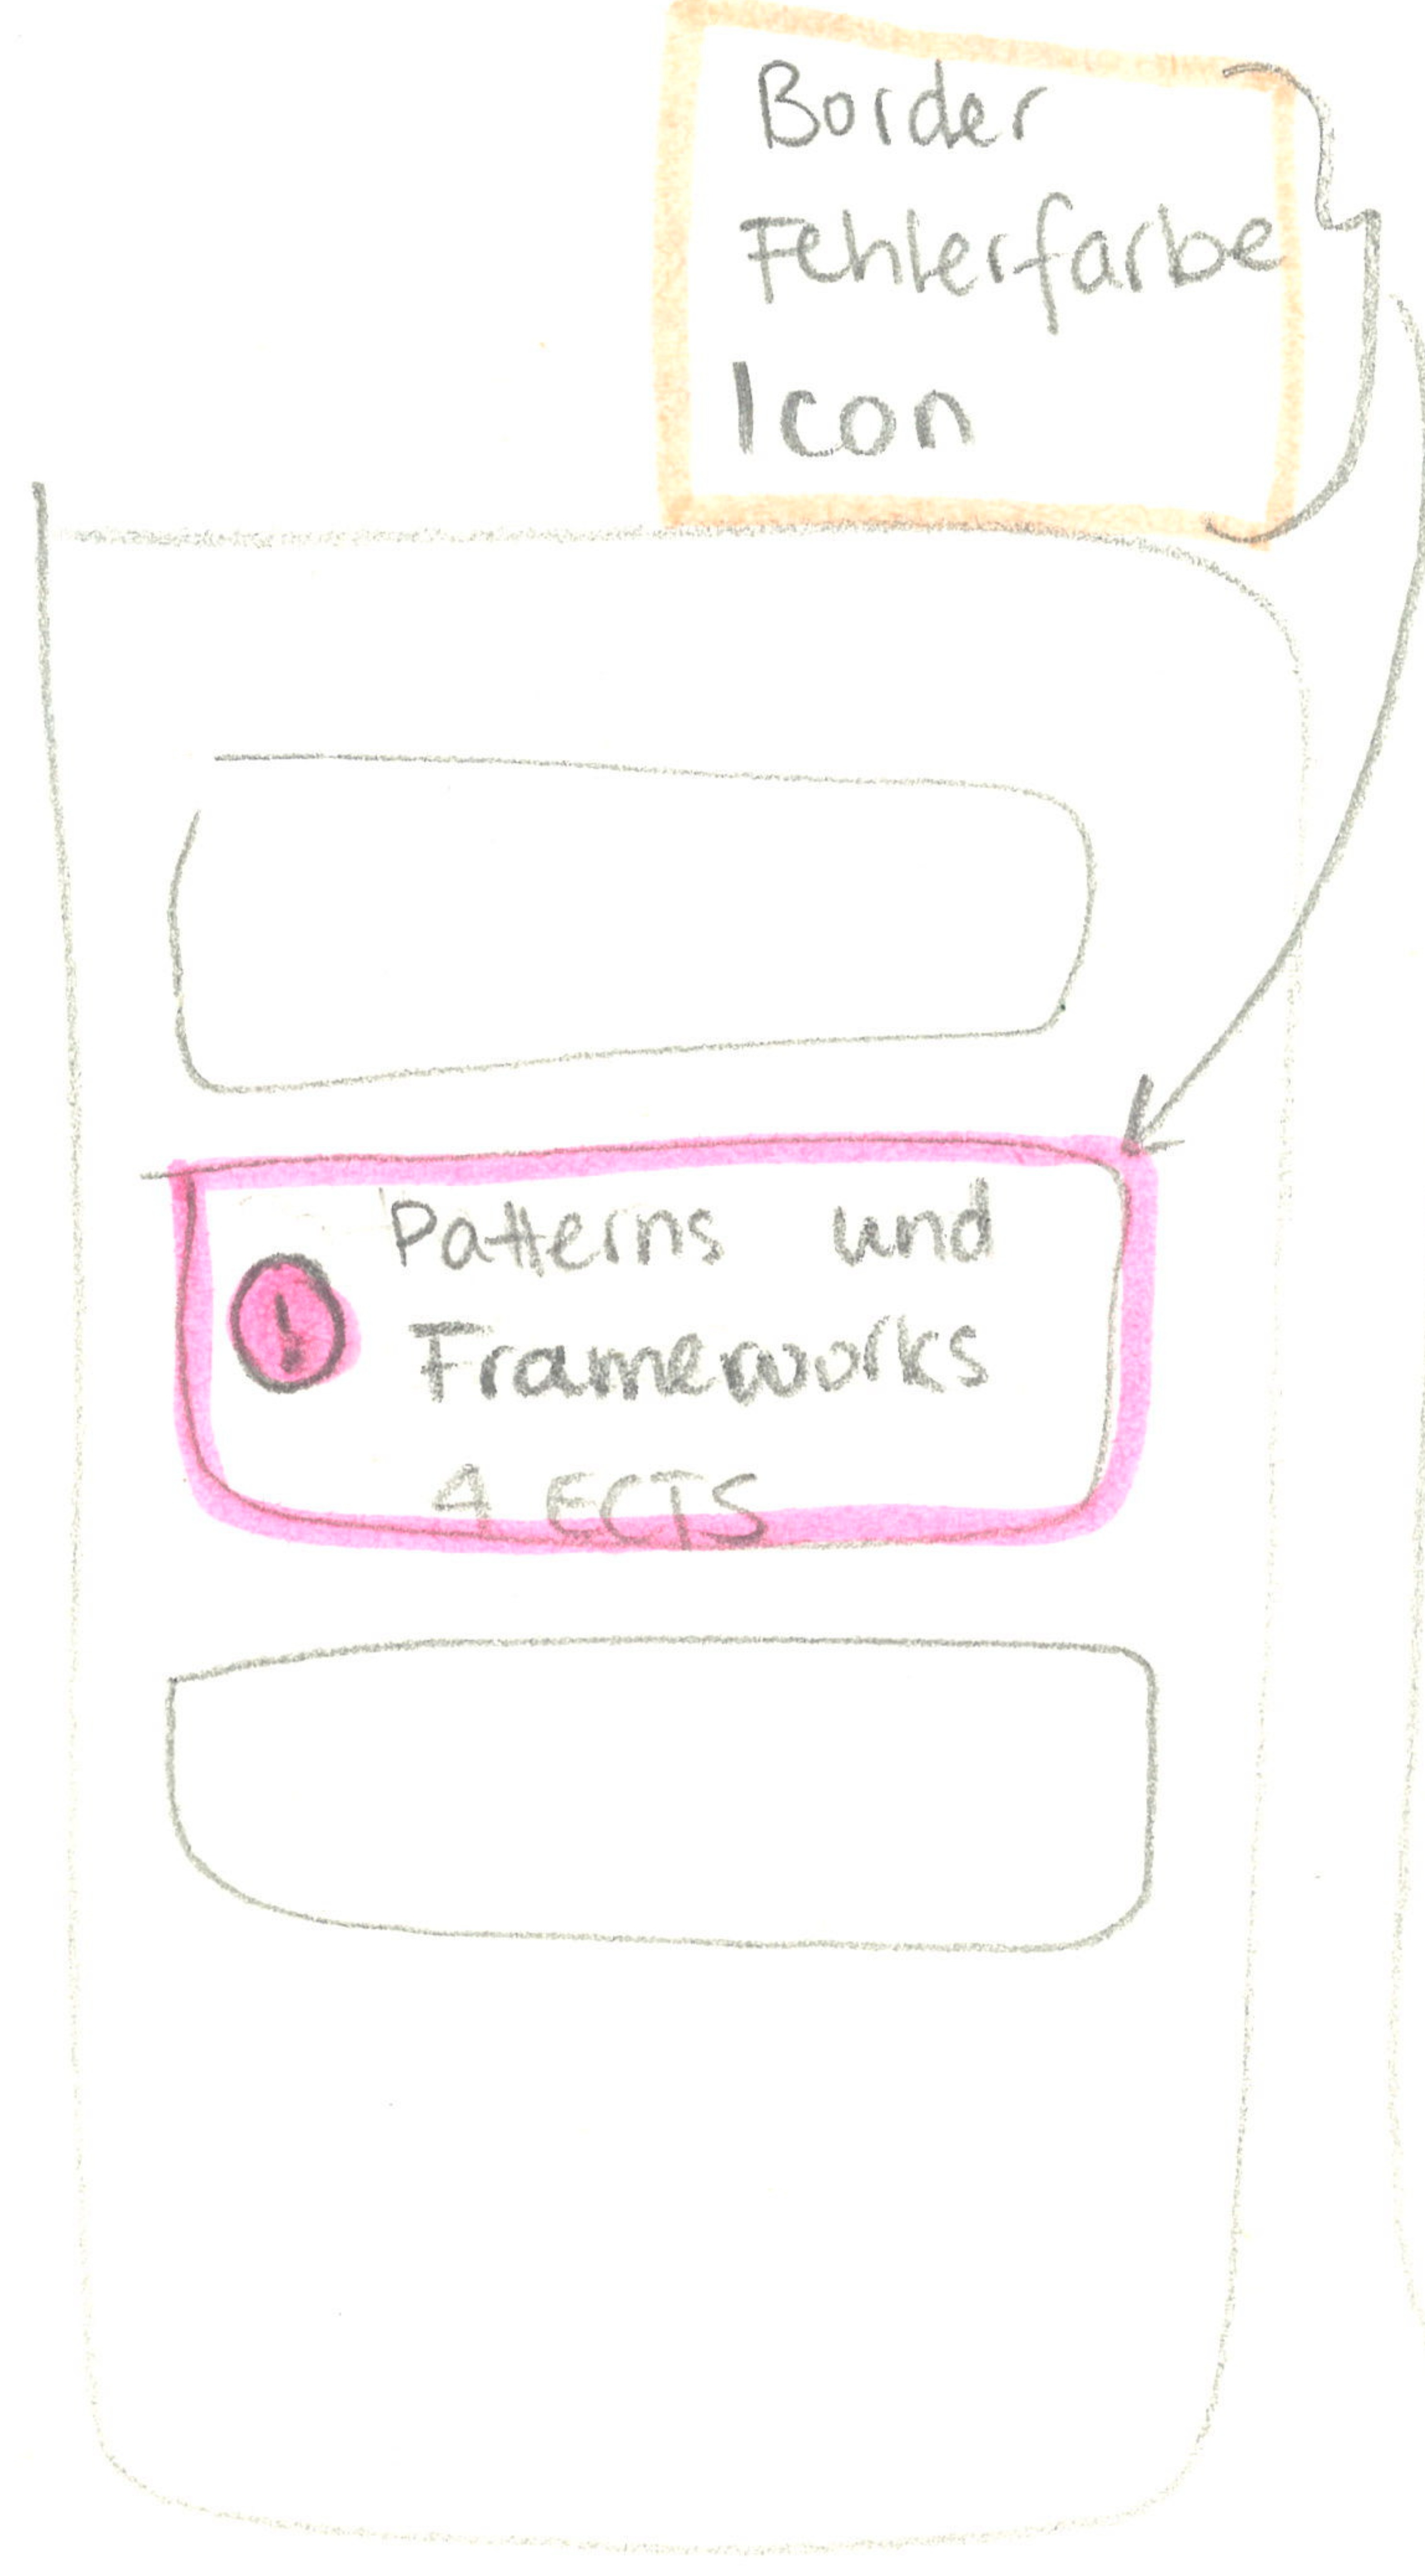 Border
Fehlerfarbe
Icon
Patterns und
! Frameworks
4 ECTS